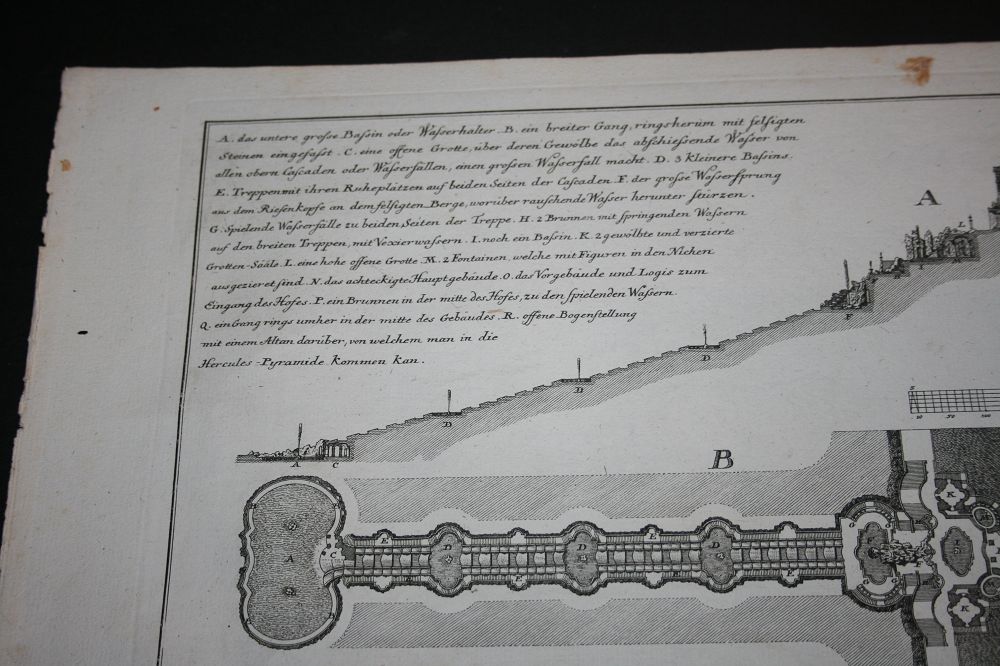 A. das untere grosse Bassin oder Wasserhalter. B. ein breiter Gang, ringsherüm mit felsigten
Steinen eingefasst. C. eine offene Grotte, über deren Gewölbe das abschiessende Wasser von
allen obern Cascaden oder Wasserfällen, einen grossen Wasserfall macht. D. 3 kleinere Bassins.
E. Treppen mit ihren Ruheplätzen auf beiden Seiten der Cascaden. F. der grosse Wassersprung
aus dem Riesenkopfe an dem felsigten Berge, worüber rauschende Wasser herunter stürzen.
G. Spielende Wasserfälle zu beiden Seiten der Treppe. H. 2 Brunnen mit springenden Wassern
auf den breiten Treppen, mit Vexierwassern. I. noch ein Bassin. K. 2 gewölbte und verzierte
Grotten-Sääle. L. eine hohe offene Grotte. M. 2 Fontainen, welche mit Figuren in den Nichen
ausgezieret sind. N. das achteckigte Hauptgebäude. O. das Vorgebäude und Logis zum
Eingang des Hofes. P. ein Brunnen in der mitte des Hofes, zu den spielenden Wassern.
Q. ein Gang rings umher in der mitte des Gebäudes. R. offene Bogenstellung
mit einem Altan darüber, von welchem man in die
Hercules-Pyramide kommen kan.
A
L
I
F
D
D
D
A C
5
10 50 100
B
B
E
E
K
A
C
D
D
D
F
I
E
E
E
B
K